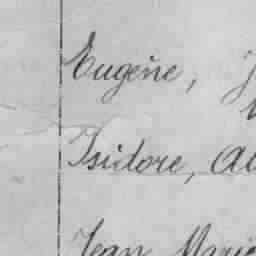 Eugène,
Isidore,
Jean Marie